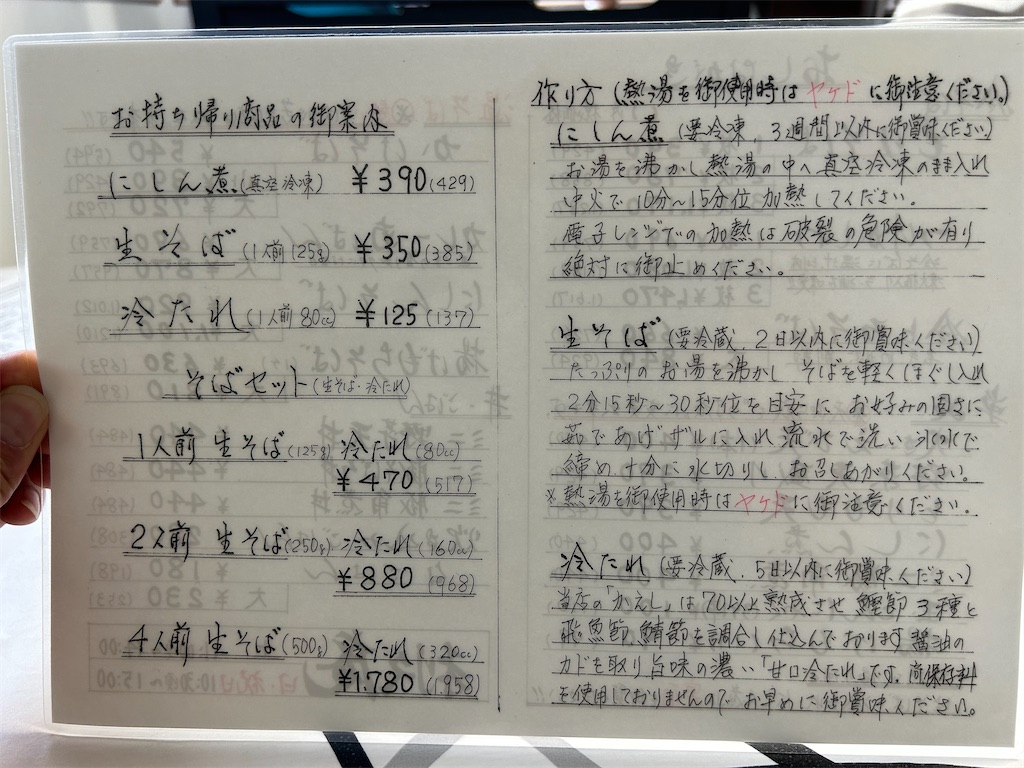 お持ち帰り商品の御案内
にしん煮(真空冷凍) ¥390(429)
生そば(1人前125g) ¥350(385)
冷たれ(1人前80cc) ¥125(137)
そばセット(生そば・冷たれ)
1人前 生そば(125g) 冷たれ(80cc)
¥470(517)
2人前 生そば(250g) 冷たれ(160cc)
¥880(968)
4人前 生そば(500g) 冷たれ(320cc)
¥1.780(1.958)
作り方(熱湯を御使用時はヤケドに御注意ください。)
にしん煮(要冷凍、3週間以内に御賞味ください)
お湯を沸かし熱湯の中へ真空冷凍のまま入れ
中火で10分〜15分位加熱してください。
電子レンジでの加熱は破裂の危険が有り
絶対に御止めください。
生そば(要冷蔵、2日以内に御賞味ください)
たっぷりのお湯を沸かし そばを軽くほぐし入れ
2分15秒〜30秒位を目安に お好みの固さに
茹であげザルに入れ流水で洗い氷水で
締め十分に水切りし お召しあがりください。
※熱湯を御使用時はヤケドに御注意ください。
冷たれ(要冷蔵、5日以内に御賞味ください)
当店の「かえし」は70以上熟成させ 鰹節3種と
飛魚節、鯖節を調合し仕込んでおります 醤油の
カドを取り旨味の濃い「甘口冷たれ」です。尚保存料
を使用しておりませんので お早めに御賞味ください。